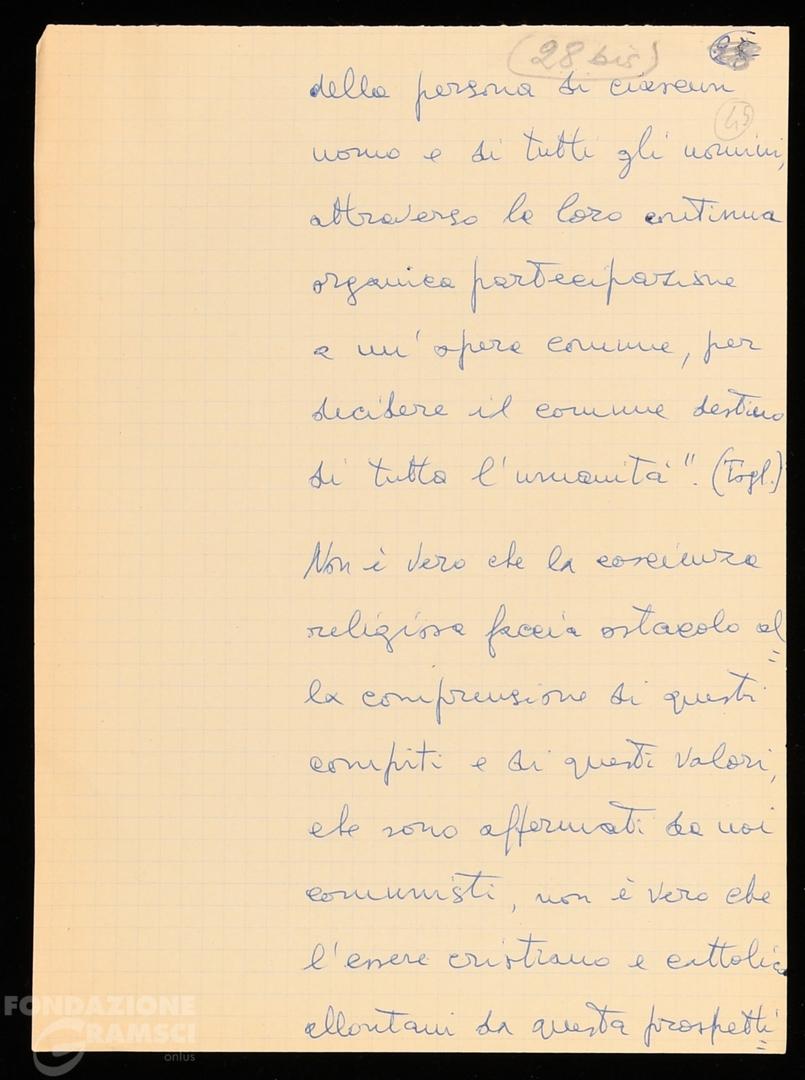 (28 bis)
della persona di ciascun
45
uomo e di tutti gli uomini,
attraverso la loro continua
organica partecipazione
a un' opera comune, per
decidere il comune destino
di tutta l'umanità". (Togl.)
Non è vero che la coscienza
religiosa faccia ostacolo al=
la comprensione di questi
compiti e di questi valori,
che sono affermati da noi
comunisti, non è vero che
l'essere cristiano e cattolico
allontani da questa prospetti=
FONDAZIONE
GRAMSCI
onlus